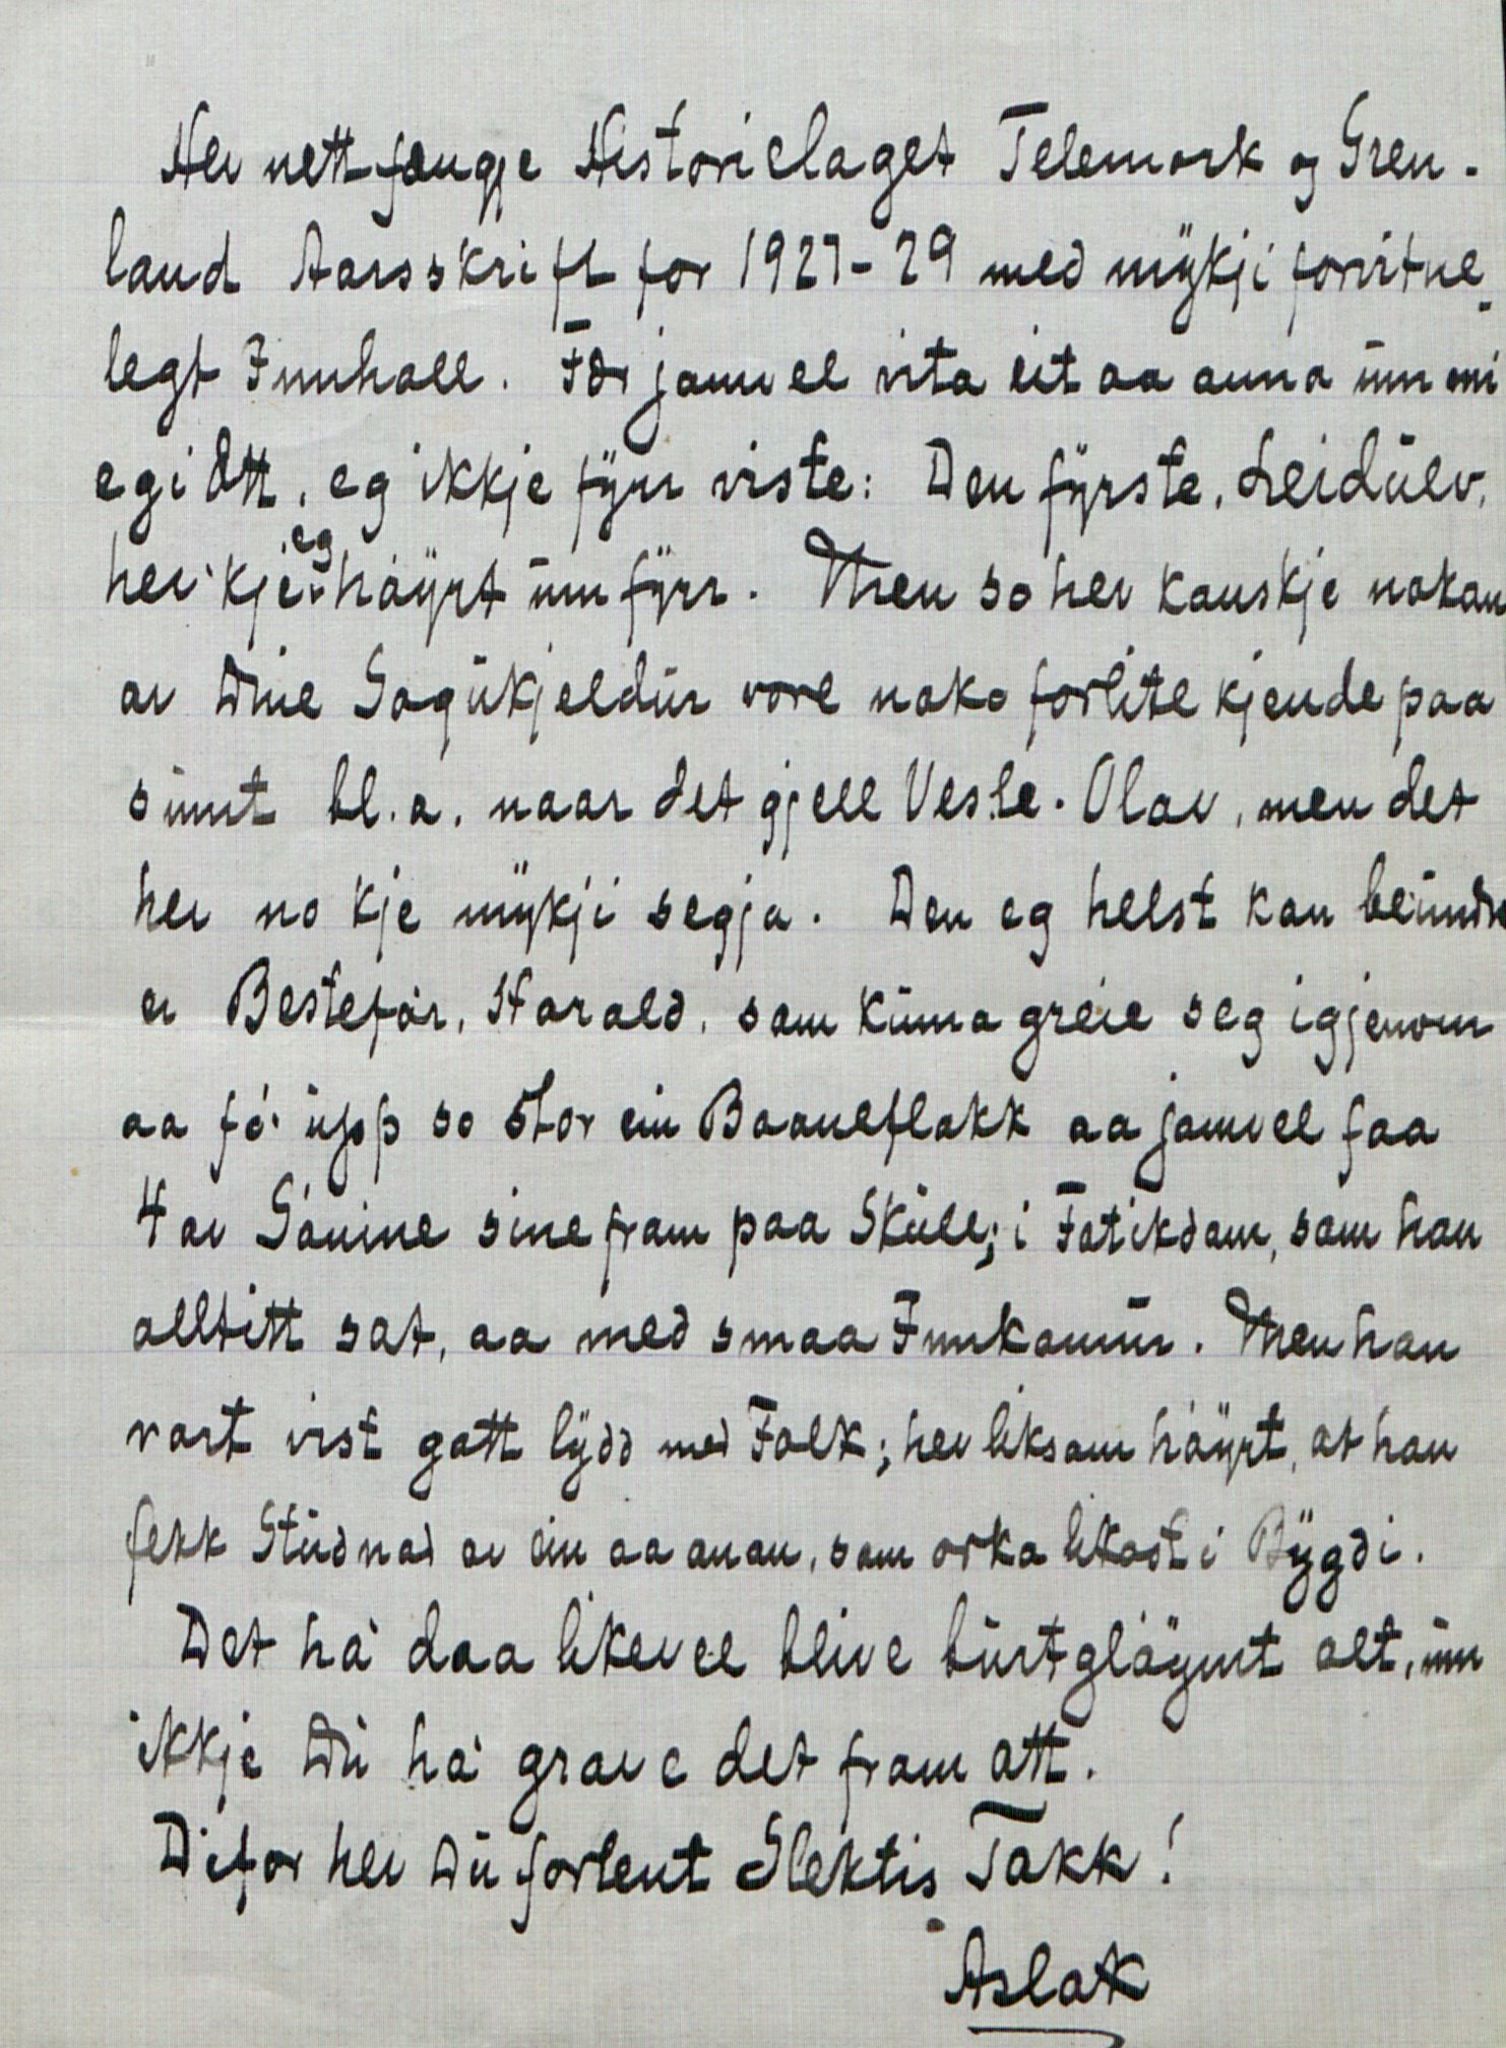 Hev nett fengje Historielaget Telemark og Gren-
land Aarsskrift for 1927-29 med mykji forvitne-
legt Innhall. Fær jamvel vita eit aa anna um mi
egi Ætt, eg ikkje fyrr viste: Den fyrste, Leidulv,
hev'kje eg höyrt um fyrr. Men so hev kanskje nokan
av Dine Sogukjeldur vore noko forlite kjende paa
sumt bl.a. naar det gjell Vesle-Olav, men det
hev no kje mykji segja. Den eg helst kan beundre
er Bestefar, Harald, som kunna greie seg igjenom
aa fö upp so stor ein Baaneflokk aa jamvel faa
4 av Sönine sine fram paa Skule; i Fatikdom, som han
alltitt sat, aa med smaa Innkomur. Men han
vart vist gott lydd med Folk; hev liksom höyrt, at han
fekk Studnad av ein aa anan, som orka likast i Bygdi.
Det ha' daa likevel blive burtglöymt alt, um
ikkje Du ha' grave det fram att.
Difor hev Du fortent Slektis Takk!
Aslak